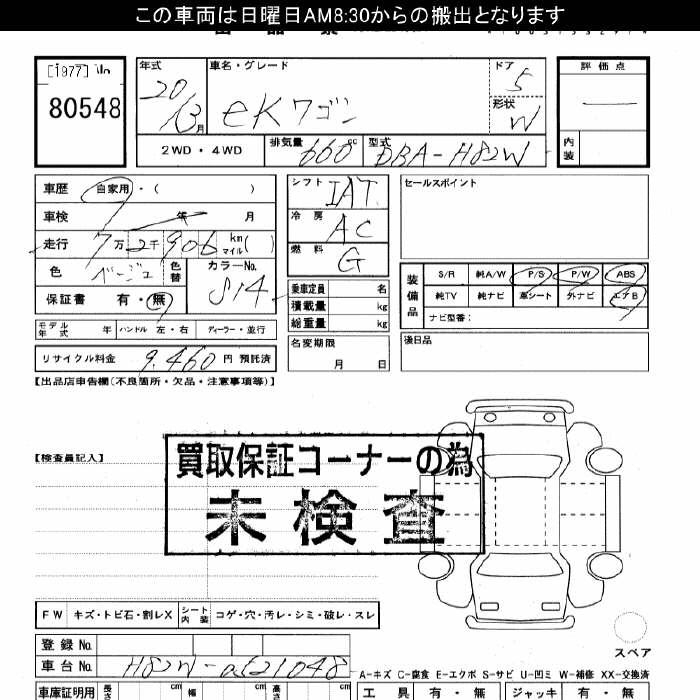 この車両は日曜日AM8:30からの搬出となります
[1977] No
80548
年式 車名・グレード ドア 評価点
20/3月 eKワゴン 5 ―
形状 W
2WD・4WD 排気量 660cc 型式 DBA-H82W 内装
車歴 自家用・( )
車検 年 月
走行 7万2千906 km マイル( )
色 ベージュ 色替 カラーNo. S14
保証書 有・無
モデル年式 年 ハンドル 左・右 ディーラー・並行
リサイクル料金 9,460 円 預託済
シフト IAT
冷房 AC
燃料 G
乗車定員 名
積載量 kg
総重量 kg
名変期限
月 日
セールスポイント
装備品 S/R 純A/W P/S P/W ABS
純TV 純ナビ 革シート 外ナビ エアB
ナビ型番:
後日品
【出品店申告欄(不良箇所・欠品・注意事項等)】
【検査員記入】
買取保証コーナーの為
未検査
FW キズ・トビ石・割レX シート内装 コゲ・穴・汚レ・シミ・破レ・スレ
スペア
登録No.
車台No. H82W-0621048
A-キズ C-腐食 E-エクボ S-サビ U-凹ミ W-補修 XX-交換済
車庫証明用 長さ cm 幅 cm 高さ cm 工具 有・無 ジャッキ 有・無